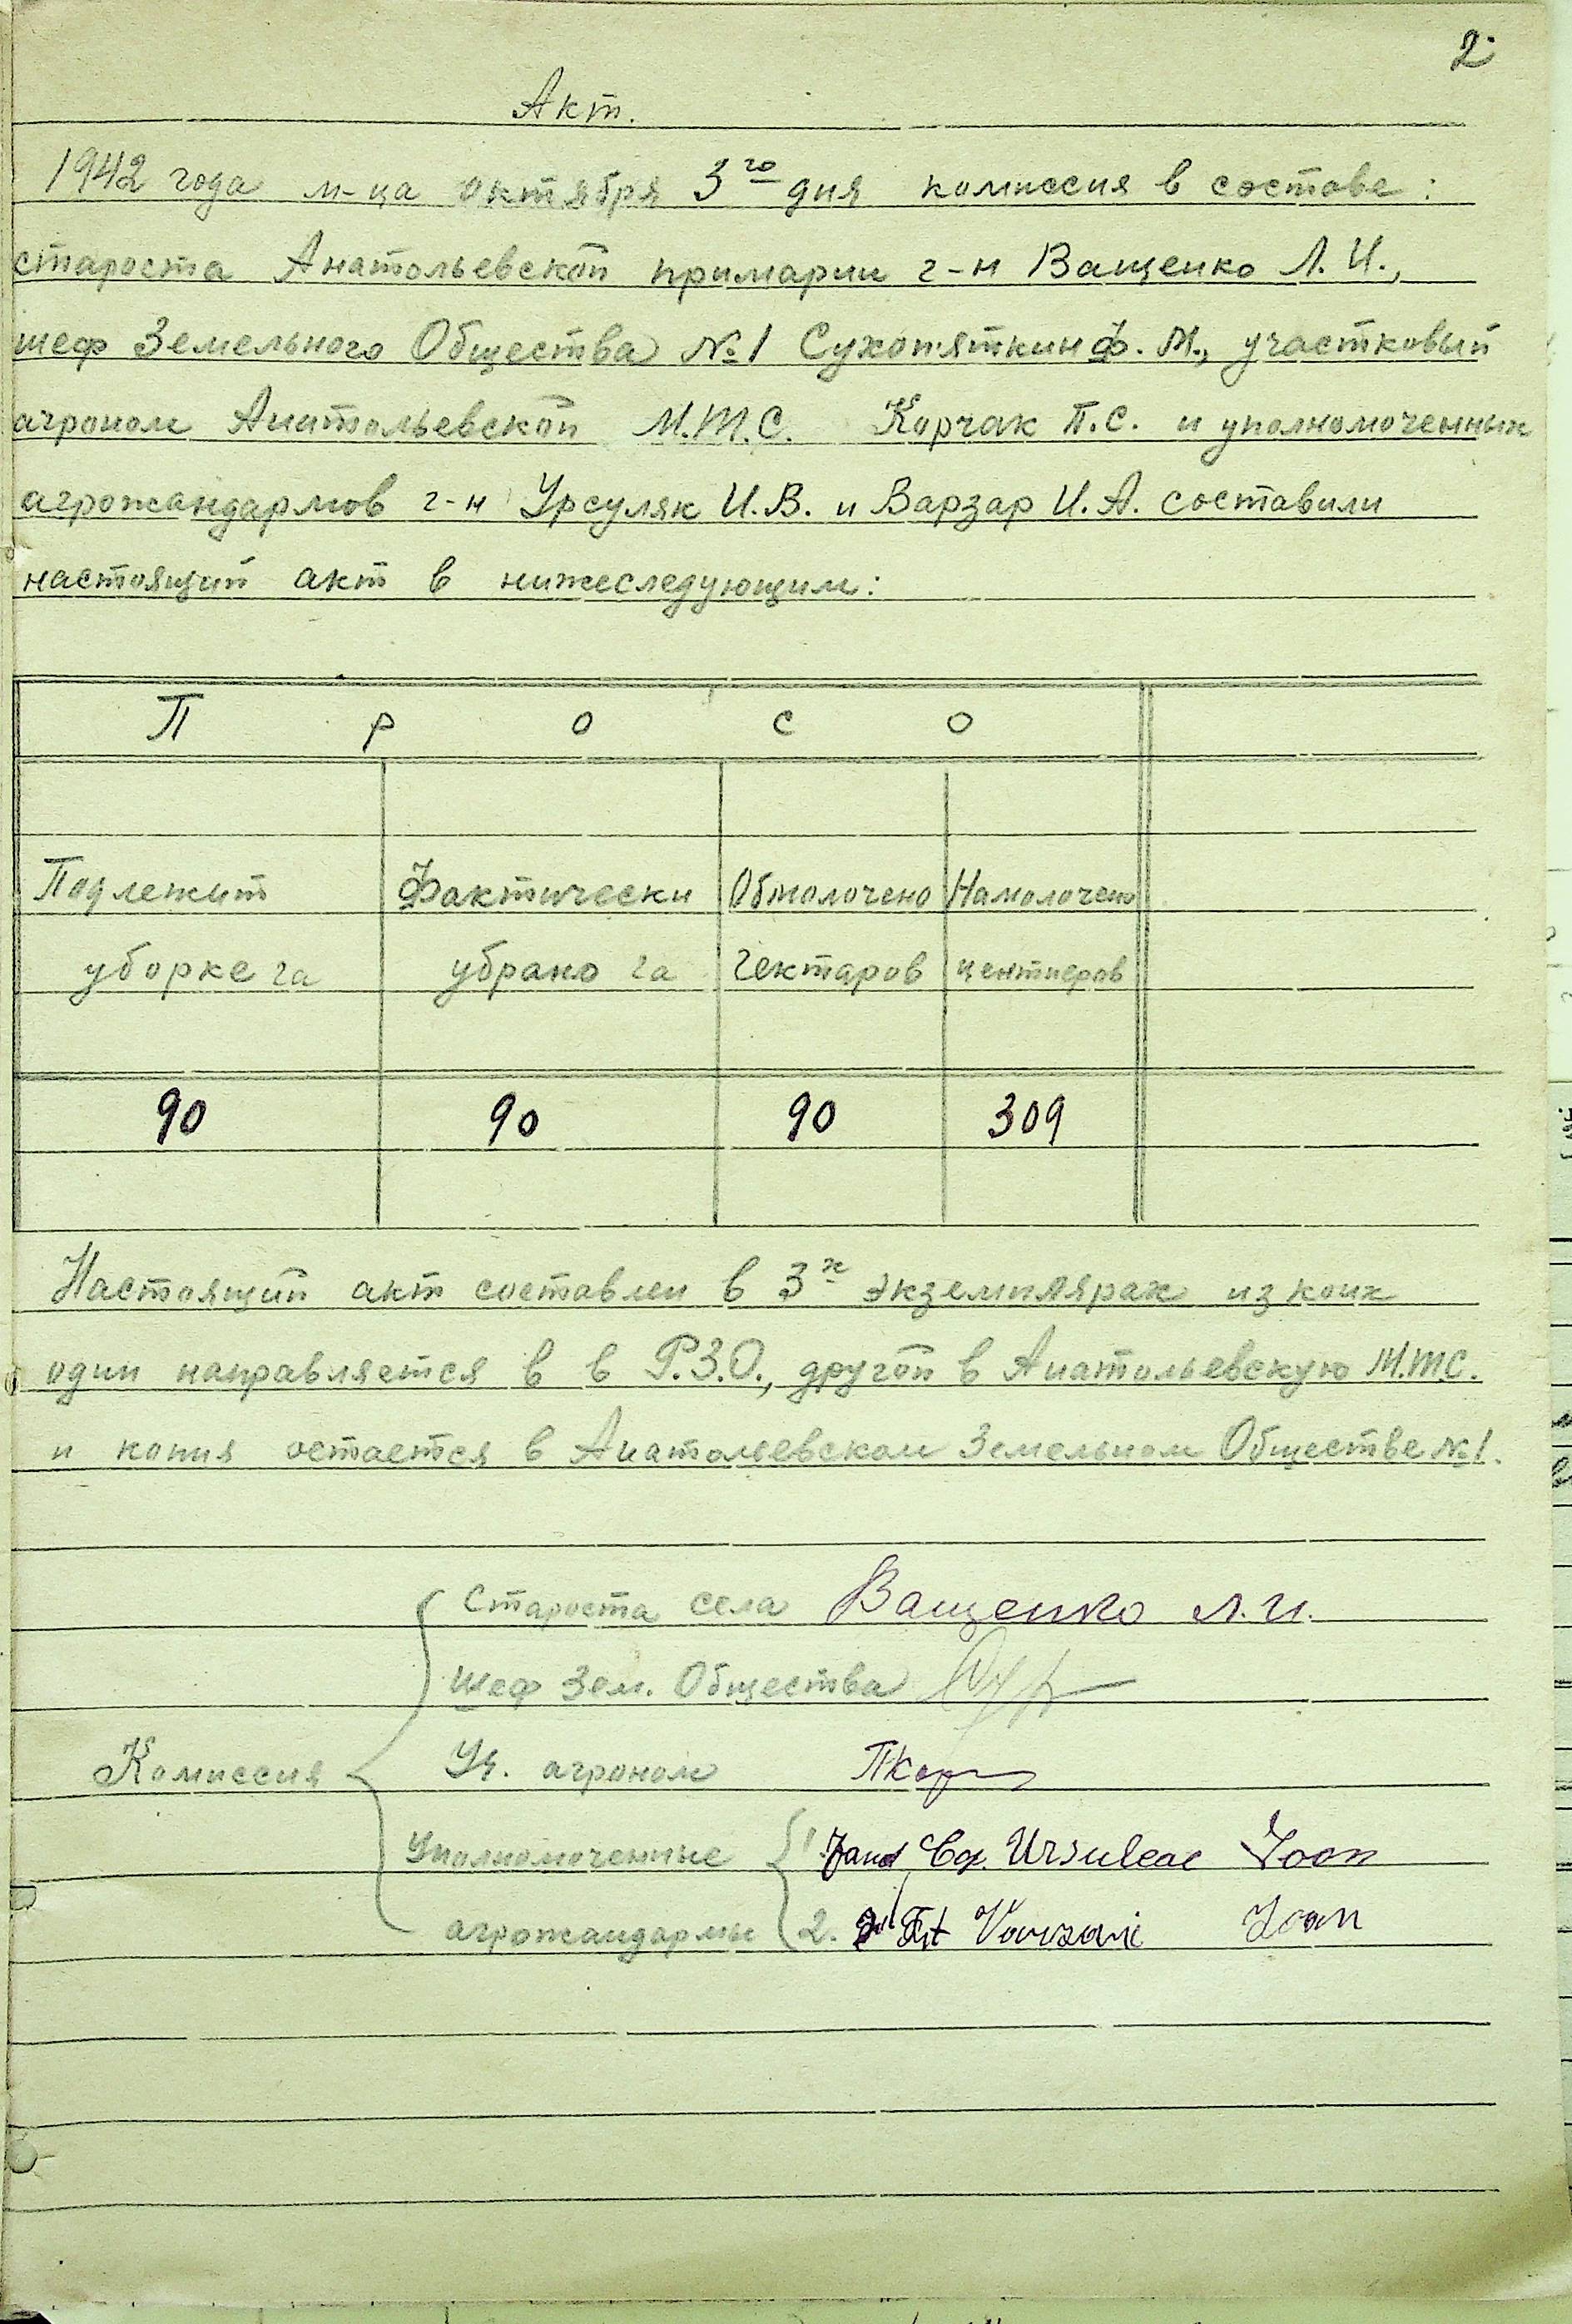 2
Акт.
1942 года м-ца октября 3го дня комиссия в составе:
староста Анатольевской примарии г-н Ващенко Л. И.,
шеф Земельного Общества №1 Сухопяткин Ф. М., участковый
агроном Анатольевской М.Т.С. Корчак П.С. и уполномоченных
агрожандармов г-н Урсуляк И.В. и Варзар И.А. составили
настоящий акт в нижеследующим:
П р о с о
Подлежит Фактически Обмолочено Намолочено
уборке га убрано га гектаров центнеров
90 90 90 309
Настоящий акт составлен в 3х экземплярах из коих
один направляется в в Р.З.О., другой в Анатольевскую М.Т.С.
и копия остается в Анатольевском Земельном Обществе №1.
Староста села Ващенко Л.И.
Шеф Зем. Общества
Комиссия Уч. агроном ПКор
Уполномоченные 1 Jand Ursuleac Ioan
агрожандармы 2. Varzari Ioan